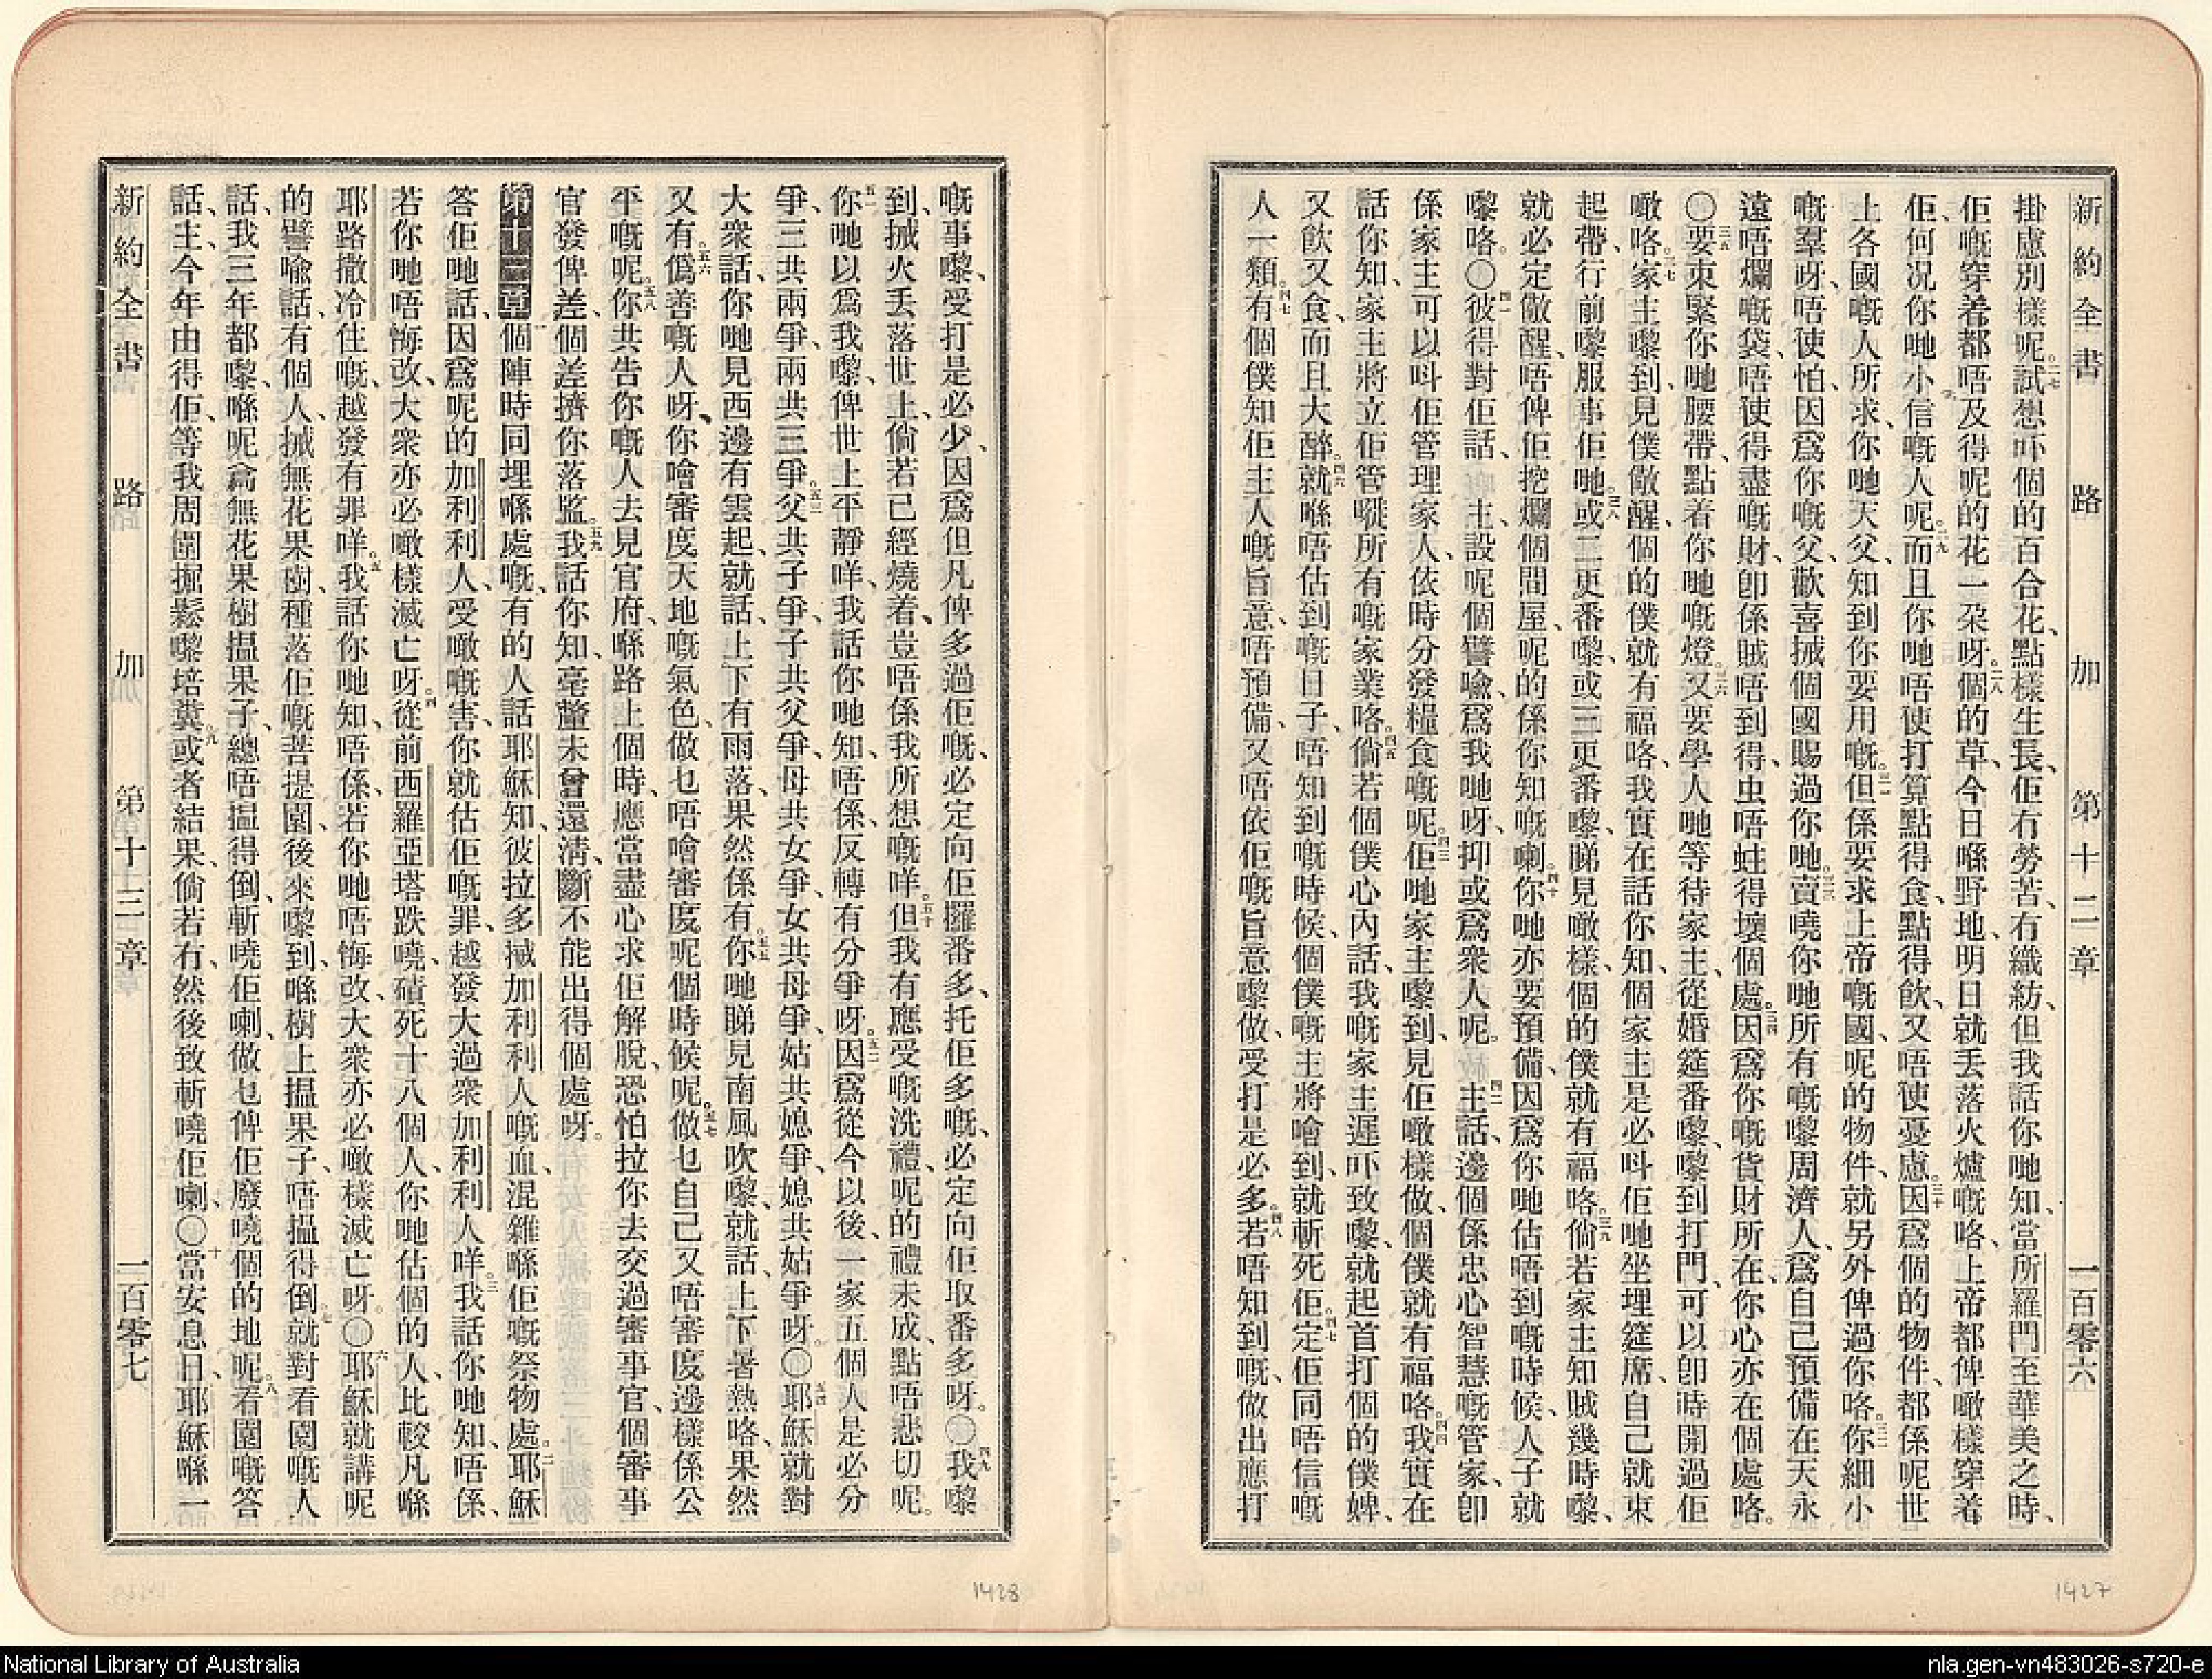 新約全書　路　加　第十二章　一百零六
掛慮別樣呢。二七試想吓個的百合花、點樣生長、佢有勞苦、有織紡、但我話你哋知、當所羅門至華美之時、
佢嘅穿着都唔及得呢的花一朶呀。二八個的草、今日喺野地、明日就丢落火爐嘅咯、上帝都俾噉樣穿着
佢、何况你哋小信嘅人呢。二九而且你哋唔使打算點得食、點得飲、又唔使憂慮。三十因爲個的物件、都係呢世
上各國嘅人所求、你哋天父、知到你要用嘅。三一但係要求上帝嘅國、呢的物件、就另外俾過你咯。三二你細小
嘅羣呀、唔使怕、因爲你嘅父、歡喜搣個國賜過你哋。三三賣嘵你哋所有嘅嚟周濟人、爲自己預備在天永
遠唔爛嘅袋、唔使得盡嘅財、卽係賊唔到得、虫唔蛀得壞個處。三四因爲你嘅貨財所在、你心亦在個處咯。
〇三五要束緊你哋腰帶、點着你哋嘅燈。三六又要學人哋等待家主、從婚筵番嚟、嚟到打門、可以卽時開過佢
噉咯。三七家主嚟到、見僕儆醒、個的僕就有福咯、我實在話你知、個家主是必呌佢哋坐埋筵席、自己就束
起帶、行前嚟服事佢哋。三八或二更番嚟、或三更番嚟、睇見噉樣、個的僕就有福咯。三九倘若家主知賊幾時嚟、
就必定儆醒、唔俾佢挖爛個間屋、呢的係你知嘅喇。四十你哋亦要預備、因爲你哋估唔到嘅時候、人子就
嚟咯。〇四一彼得對佢話、主、設呢個譬喻、爲我哋呀、抑或爲衆人呢。四二主話、邊個係忠心智慧嘅管家、卽
係家主可以呌佢管理家人、依時分發糧食嘅呢。四三佢哋家主嚟到、見佢噉樣做、個僕就有福咯。四四我實在
話你知、家主將立佢管嚨所有嘅家業咯。四五倘若個僕心內話、我嘅家主遲吓致嚟、就起首打個的僕婢、
又飮又食、而且大醉。四六就喺唔估到嘅日子、唔知到嘅時候、個僕嘅主將嚐到、就斬死佢、定佢同唔信嘅
人一類。四七有個僕知佢主人嘅旨意、唔預備、又唔依佢嘅旨意嚟做、受打是必多。四八若唔知到嘅、做出應打
嘅事嚟、受打是必少、因爲但凡俾多過佢嘅、必定向佢攞番多、托佢多嘅、必定向佢取番多呀。〇四九我嚟
到、搣火丢落世上、倘若已經燒着、豈唔係我所想嘅咩。五十但我有應受嘅洗禮、呢的禮未成、點唔悲切呢。
五一你哋以爲我嚟、俾世上平靜咩、我話你哋知、唔係、反轉有分爭呀。五二因爲從今以後、一家五個人是必分
爭、三共兩爭、兩共三爭。五三父共子爭、子共父爭、母共女爭、女共母爭、姑共媳爭、媳共姑爭呀。〇五四耶穌就對
大衆話、你哋見西邊有雲起、就話、上下有雨落、果然係有。五五你哋睇見南風吹嚟、就話、上下暑熱咯、果然
又有。五六僞善嘅人呀、你噲審度天地嘅氣色、做乜唔噲審度呢個時候呢。五七做乜自己又唔審度邊樣係公
平嘅呢。五八你共告你嘅人去見官府、喺路上個時、應當盡心求佢解脫、恐怕拉你去交過審事官、個審事
官發俾差、個差擠你落監。五九我話你知、毫釐未曾還淸、斷不能出得個處呀。
第十三章 一個陣時同埋喺處嘅、有的人話耶穌知、彼拉多搣加利利人嘅血、混雜喺佢嘅祭物處。二耶穌
答佢哋話、因爲呢的加利利人、受噉嘅害、你就估佢嘅罪、越發大過衆加利利人咩。三我話你哋知、唔係、
若你哋唔悔改、大衆亦必噉樣滅亡呀。四從前西羅亞塔跌嘵、磧死十八個人、你哋估個的人、比較凡喺
耶路撒冷住嘅、越發有罪咩。五我話你哋知、唔係、若你哋唔悔改、大衆亦必噉樣滅亡呀。〇六耶穌就講呢
的譬喻話、有個人、搣無花果樹、種落佢嘅菩提園、後來嚟到、喺樹上搵果子、唔搵得倒。七就對看園嘅人
話、我三年都嚟、喺呢兪無花果樹搵果子、總唔搵得倒、斬嘵佢喇、做乜俾佢廢嘵個的地呢。八看園嘅答
話、主、今年由得佢、等我周圍掘鬆嚟培糞。九或者結果、倘若有、然後致斬嘵佢喇、〇十當安息日、耶穌喺一
新約全書　路　加　第十三章　一百零七
1428
1427
National Library of Australia
nla.gen-vn483026-s720-e